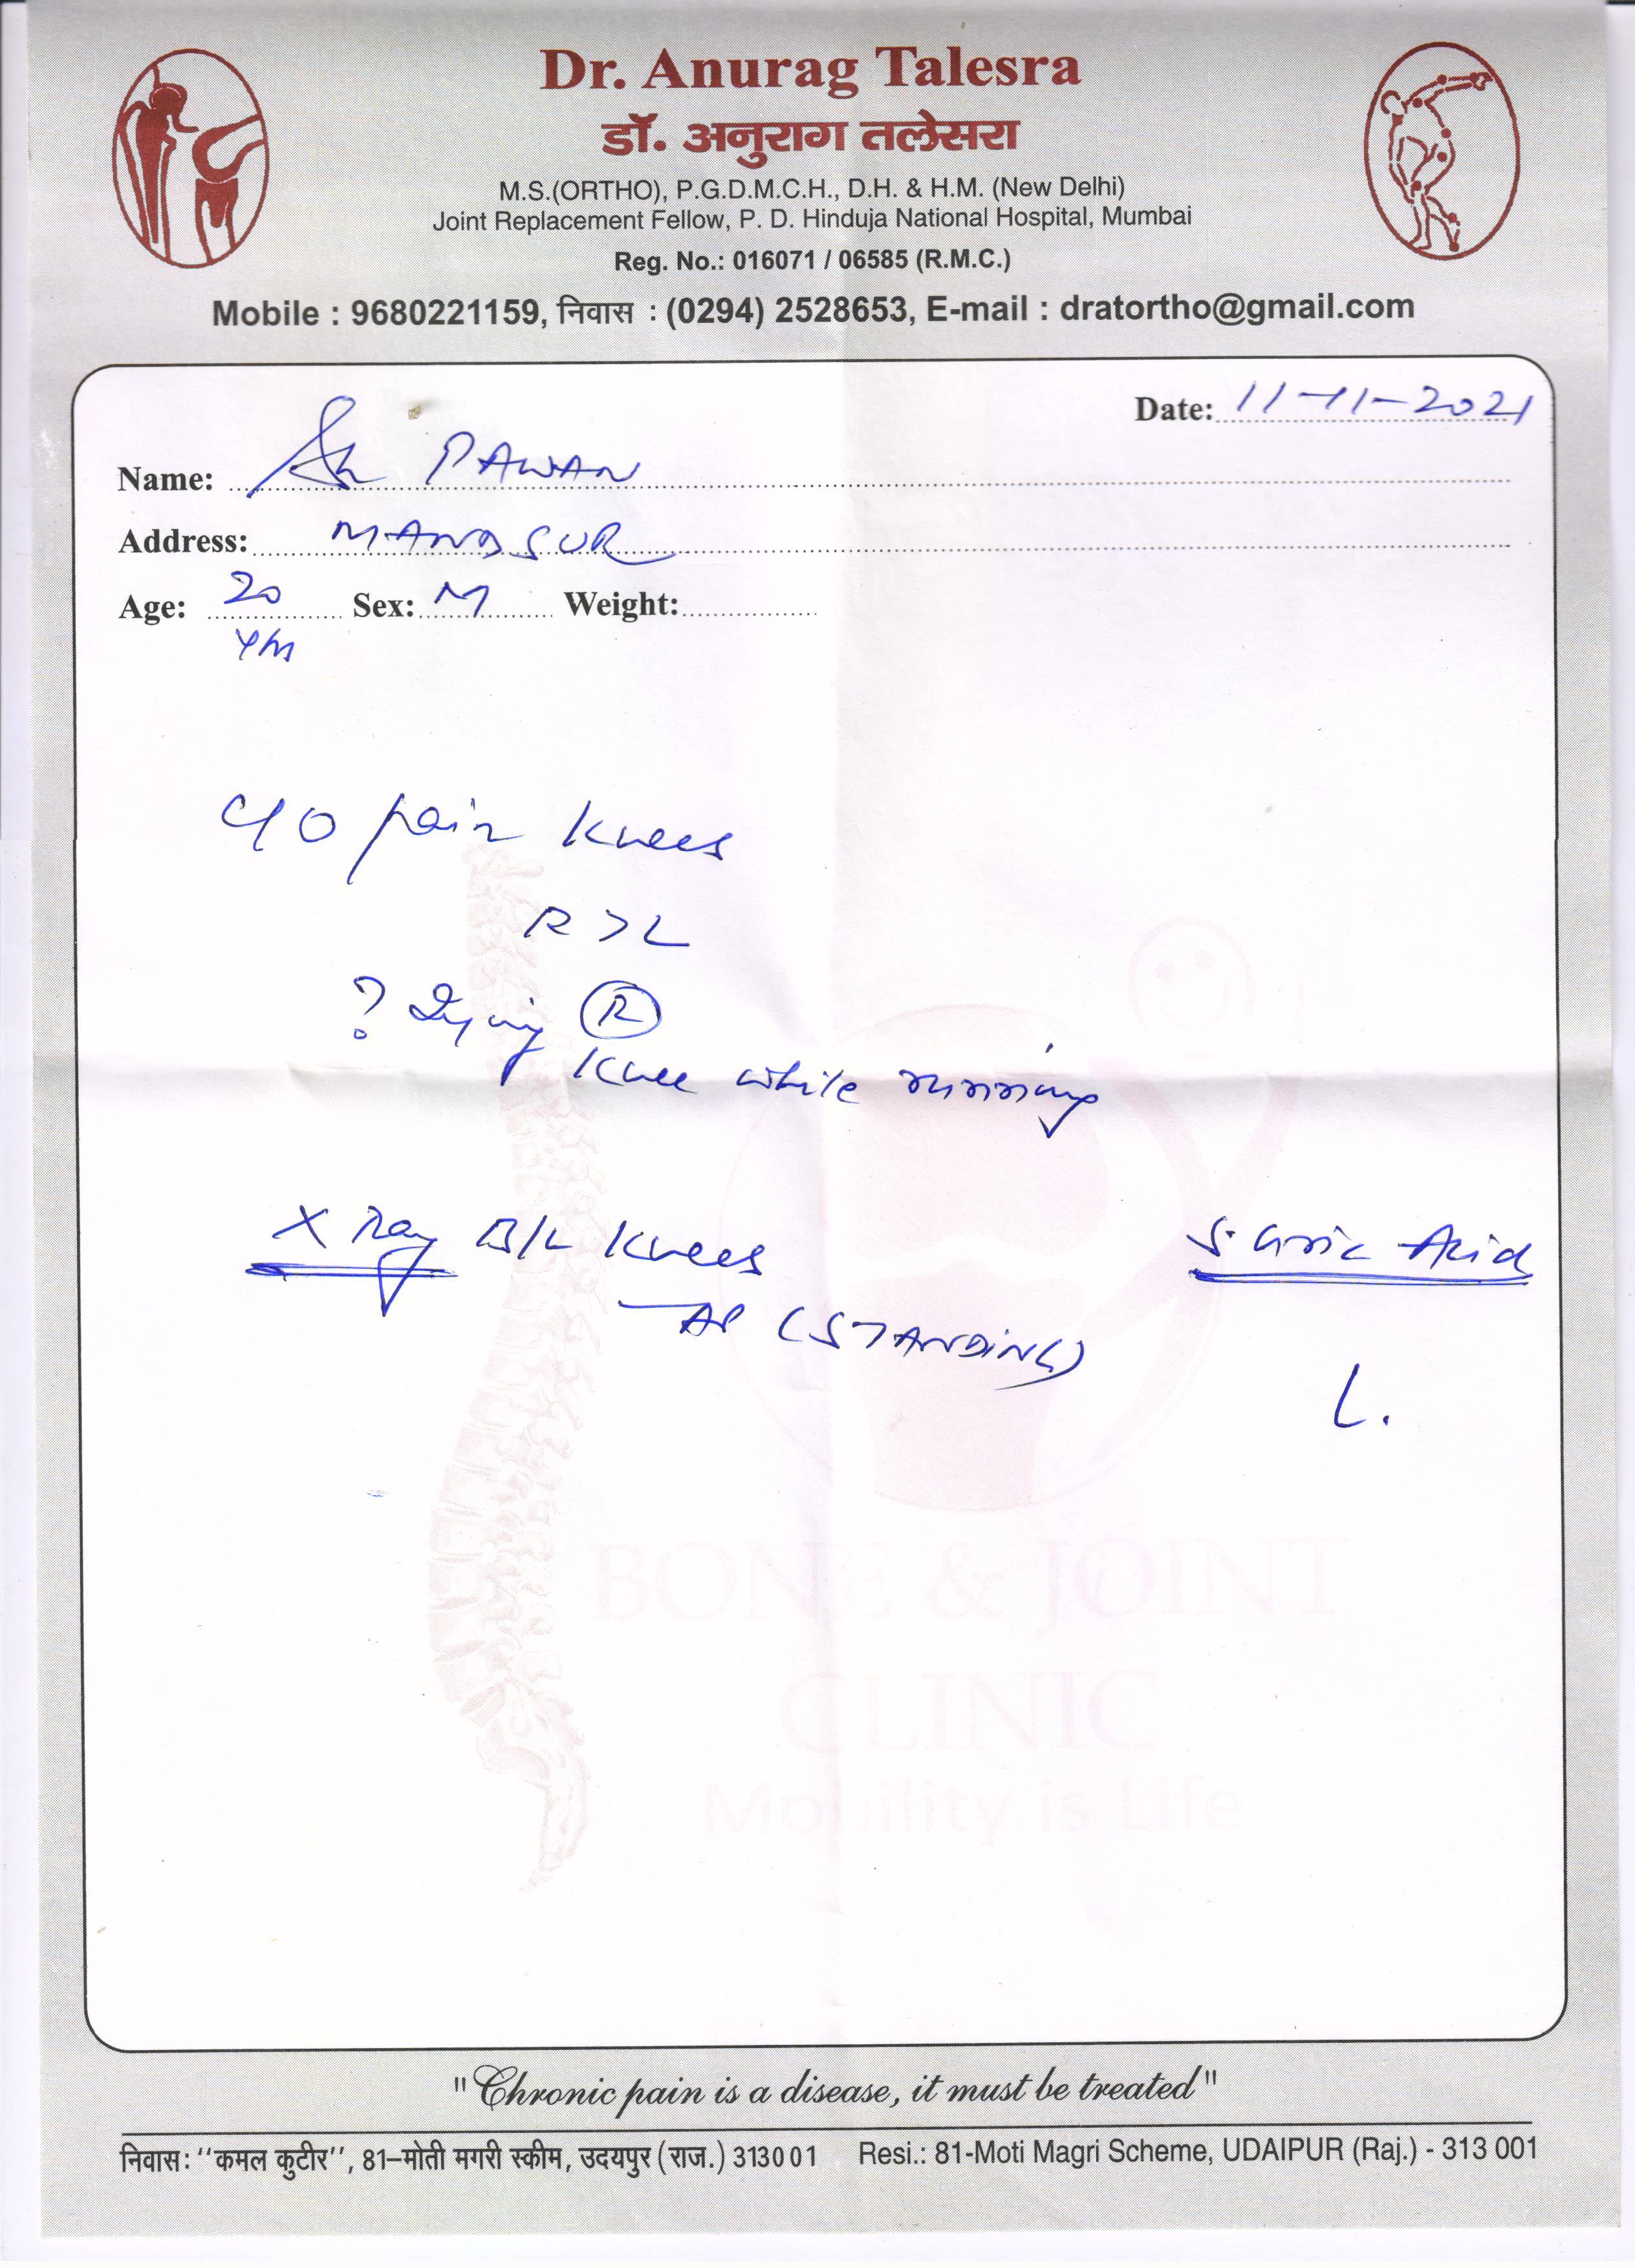 Dr. Anurag Talesra
डॉ. अनुराग तलेसरा
M.S.(ORTHO), P.G.D.M.C.H., D.H. & H.M. (New Delhi)
Joint Replacement Fellow, P. D. Hinduja National Hospital, Mumbai
Reg. No.: 016071 / 06585 (R.M.C.)
Mobile : 9680221159, निवास : (0294) 2528653, E-mail : dratortho@gmail.com
Date: 11-11-2021
Name: Sh PAWAN
Address: MANDSUR
Age: 20 yrs Sex: M Weight:
C/O pain knees
R > L
? Injury Ⓡ
knee while running
X Ray B/L knees
AP (STANDING)
S. Uric Acid
BONE & JOINT
CLINIC
Mobility is Life
"Chronic pain is a disease, it must be treated"
निवास: "कमल कुटीर", 81–मोती मगरी स्कीम, उदयपुर (राज.) 313001 Resi.: 81-Moti Magri Scheme, UDAIPUR (Raj.) - 313 001